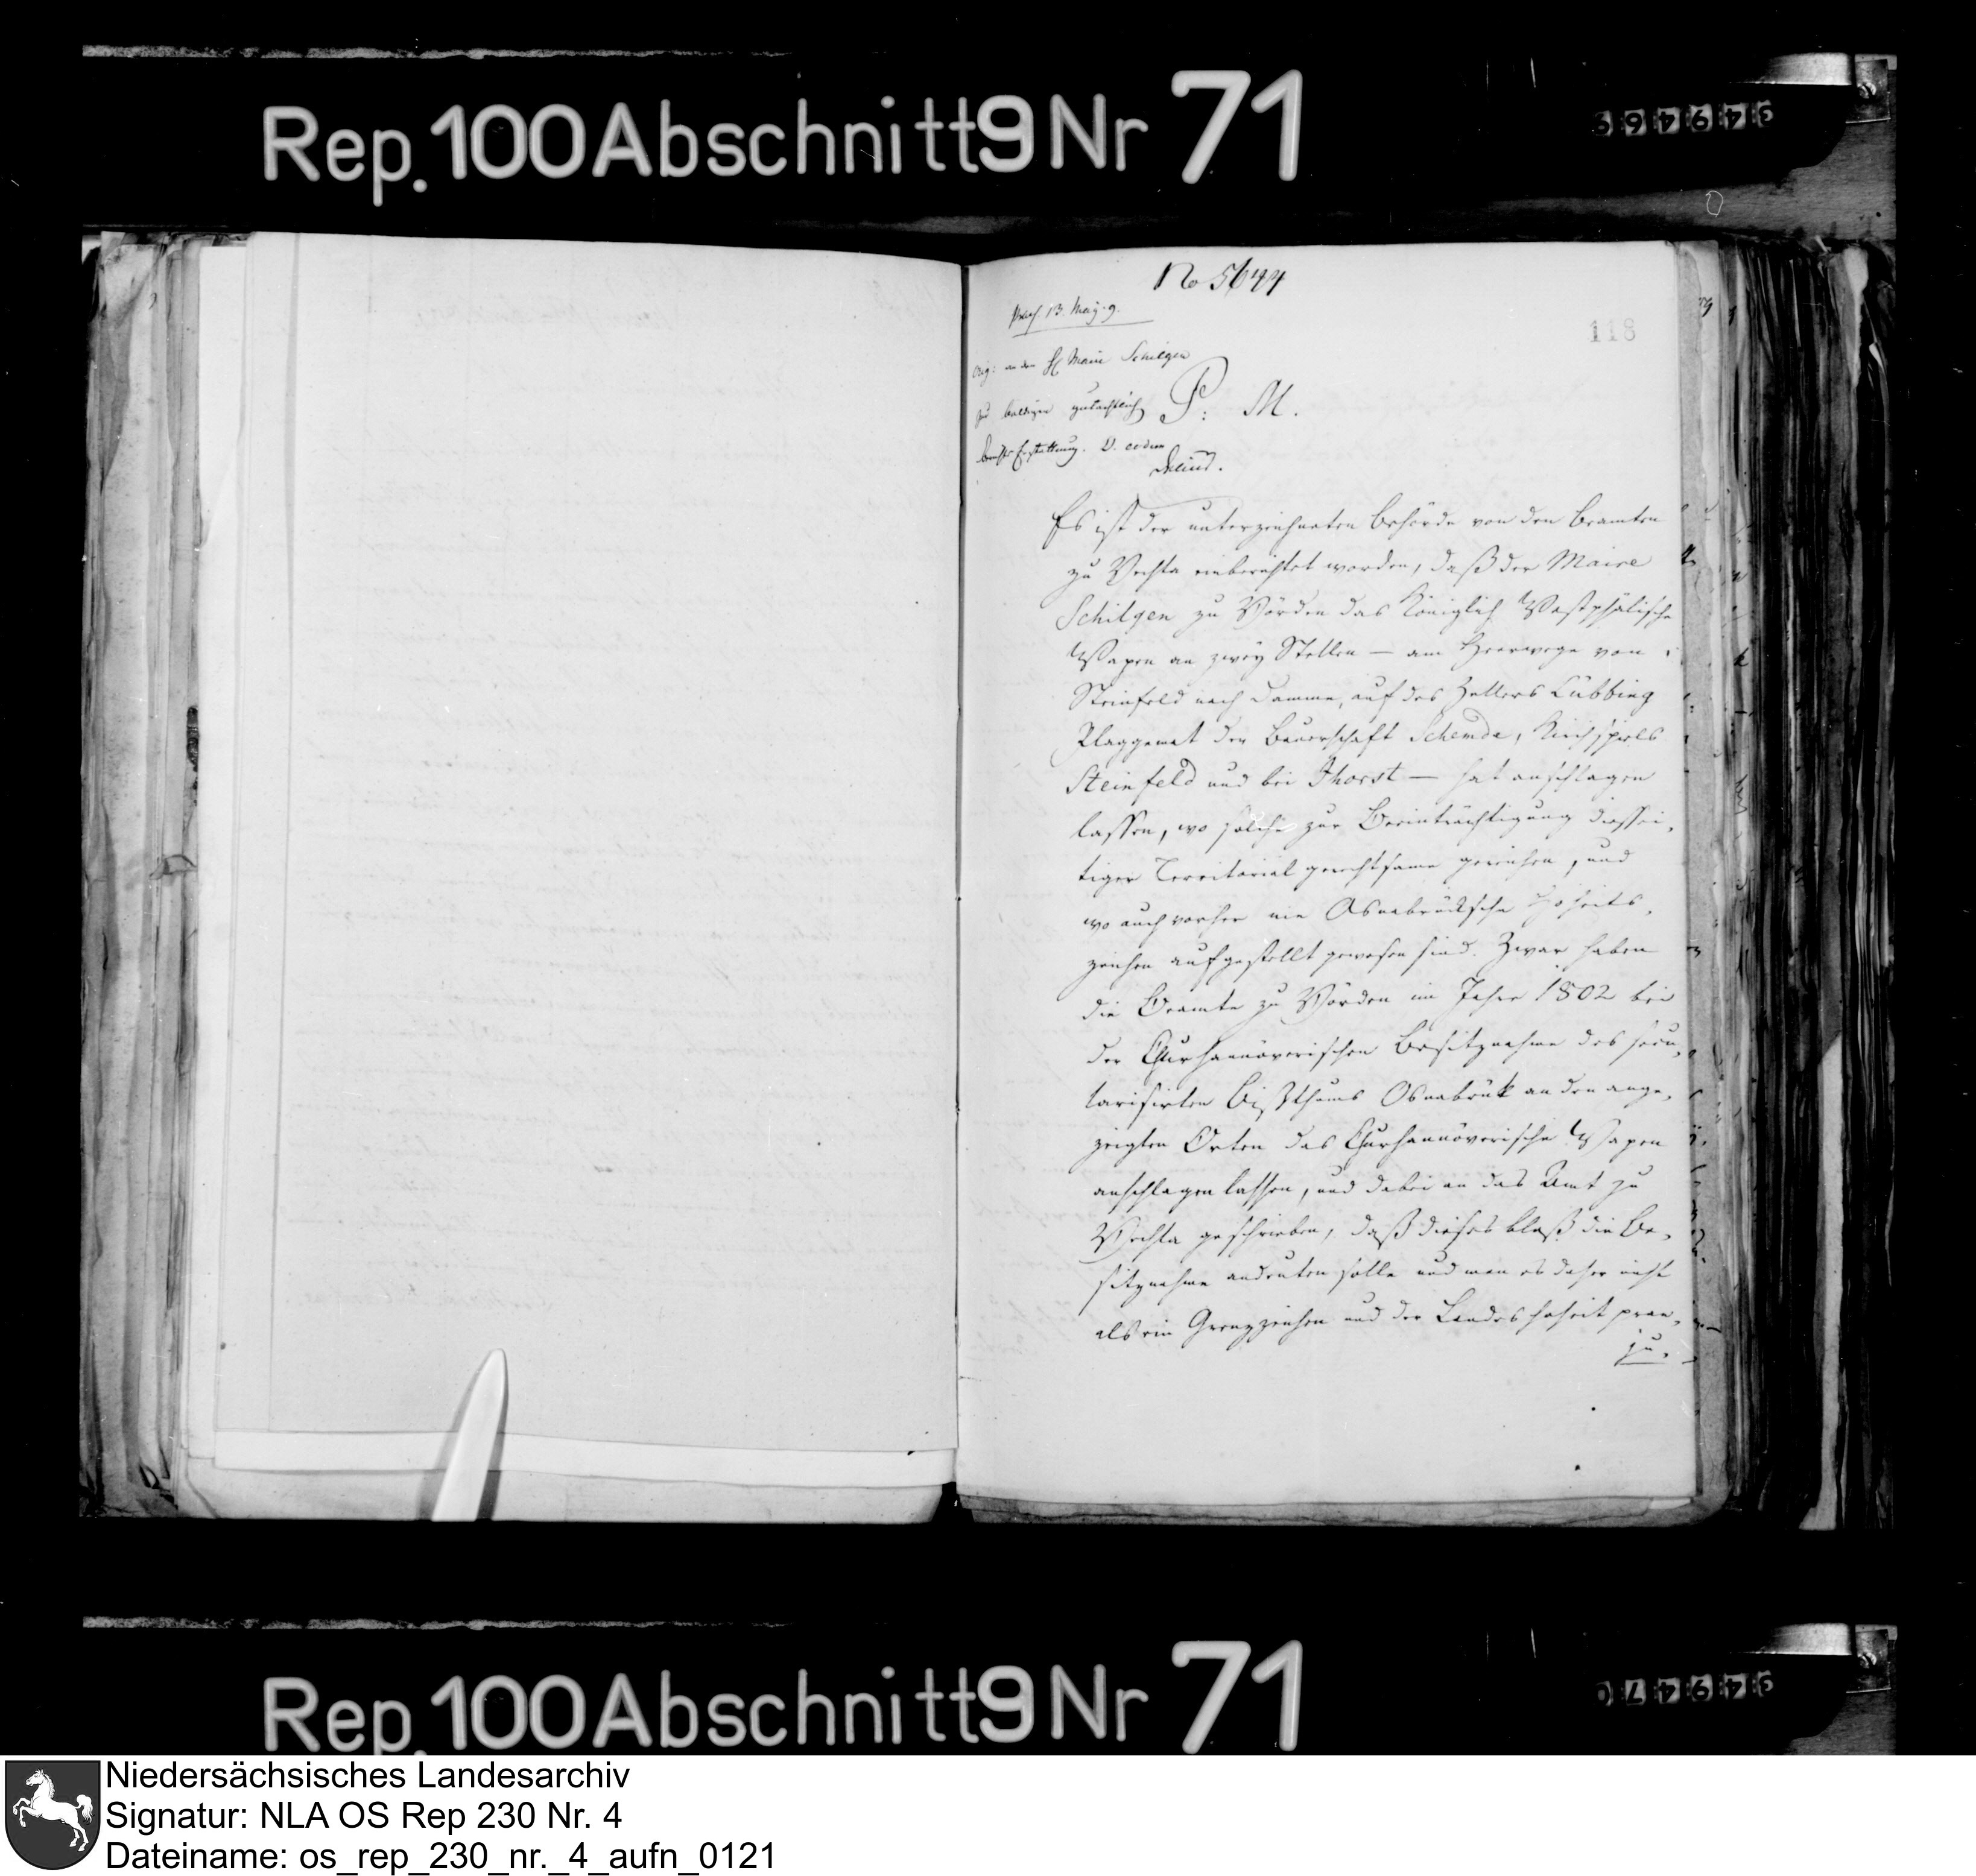 Rep. 100 Abschnitt 9 Nr 71
No 5644
118
praes. 13. May. 9.
Orig: an den H Maire Schilgen
zu baldiger gutachtlich
Berichts Erstattung. D. eodem
P. M.
Es ist der unterzeichneten Behörde von den Beamten
zu Vechta einberichtet worden, daß der Maire
Schilgen zu Vörden das Königlich Westphälische
Wapen an zwey Stellen — am Heerwege von
Steinfeld nach Damme, auf des Zellers Lübbing
Plaggemat der Bauerschaft Schemde, Kirchspiels
Steinfeld und bei Ihorst — hat anschlagen
lassen, wo solche zur Beeinträchtigung diessei,
tiger Territorial gerechtsame gereichen, und
wo auch vorher nie Osnabrücksche Hoheits,
zeichen aufgestellt gewesen sind. Zwar haben
die Beamte zu Vörden im Jahre 1802 bei
der Churhannöverischen Besitznahme des secu,
larisirten Bisthums Osnabrük an den ange,
zeigten Orten das Churhannöverische Wapen
anschlagen lassen, und dabei an das Amt zu
Vechta geschrieben, daß dieses bloß die Be,
sitznahme andeuten solle und man es daher nicht
als ein Grenzzeichen und der Landeshoheit prae,
ju,
Rep. 100 Abschnitt 9 Nr 71
Niedersächsisches Landesarchiv
Signatur: NLA OS Rep 230 Nr. 4
Dateiname: os_rep_230_nr._4_aufn_0121